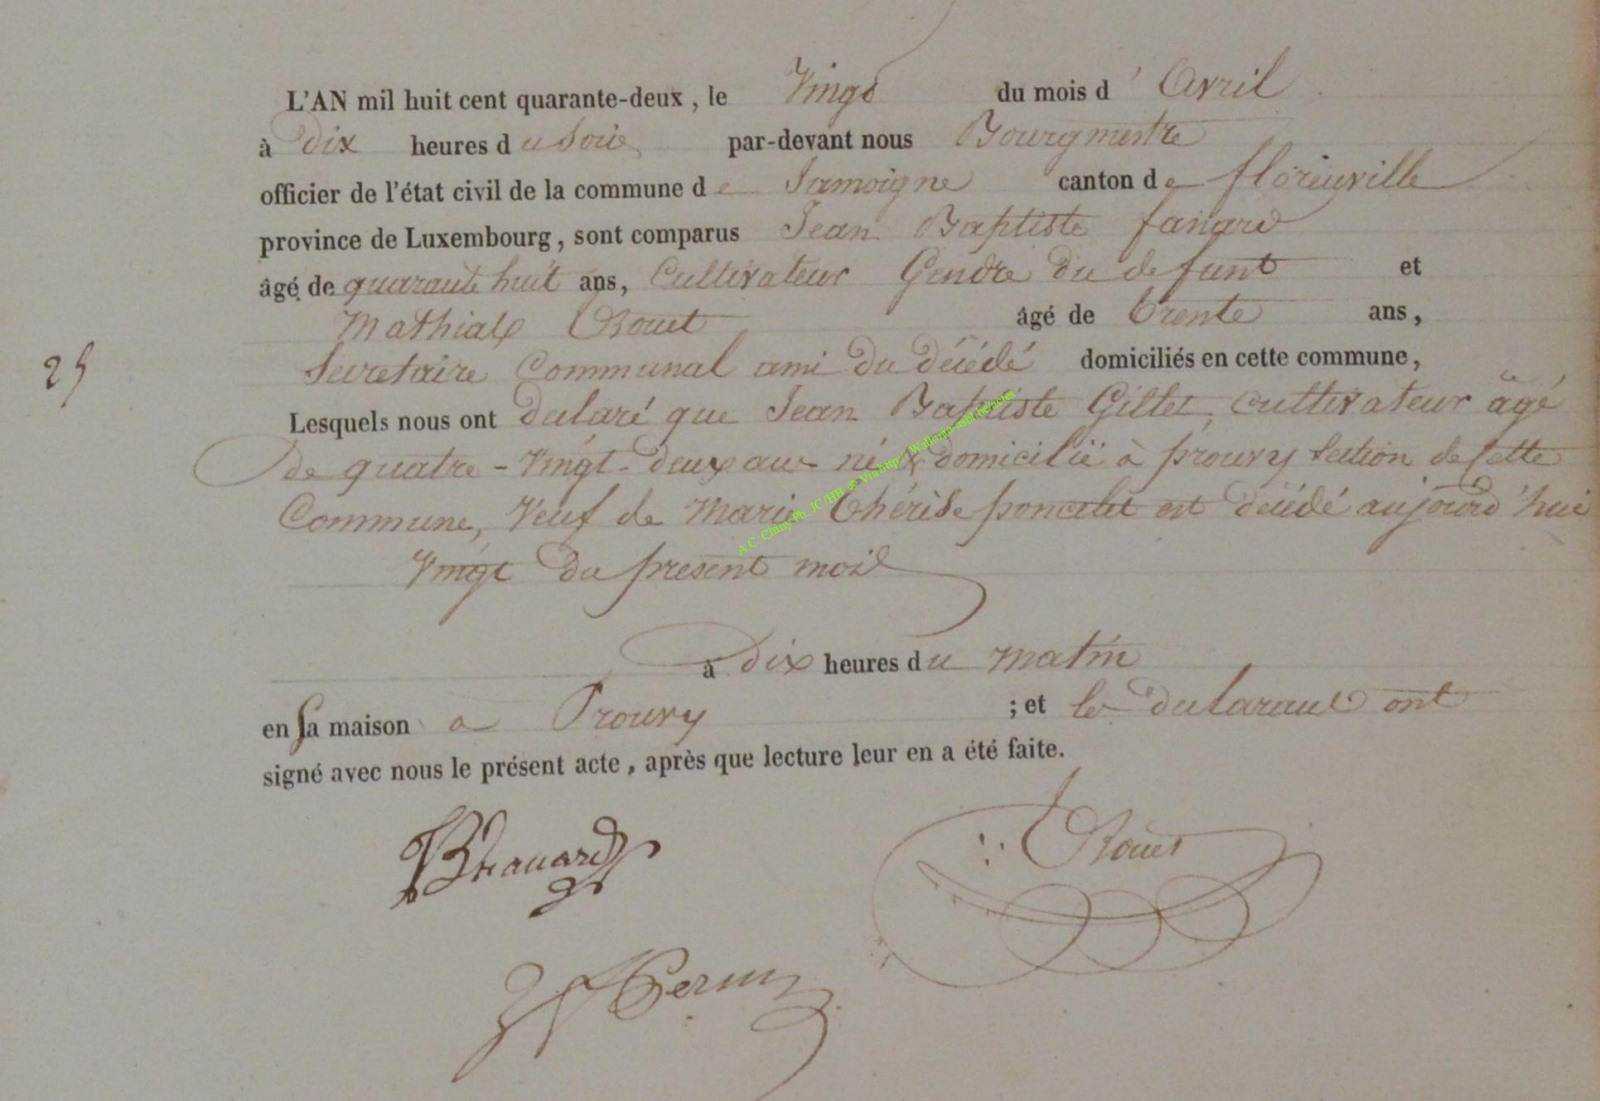 L'AN mil huit cent quarante-deux, le Vingt du mois d'Avril
à dix heures du Soir par-devant nous Bourgmestre
officier de l'état civil de la commune de Jamoigne canton de florenville
province de Luxembourg, sont comparus Jean Baptiste fanard
âgé de quarante huit ans, Cultivateur Gendre du defunt et
Mathias Rouet âgé de trente ans,
25
Secretaire Communal ami du décédé domiciliés en cette commune,
Lesquels nous ont déclaré que Jean Baptiste Gillet, cultivateur âgé
de quatre-vingt-deux ans né & domicilié à prouvy section de cette
Commune, Veuf de Marie thérèse poncelet est décédé aujourd'hui
Vingt du present mois
à dix heures du matin
en sa maison a Prouvy ; et les declarant ont
signé avec nous le présent acte, après que lecture leur en a été faite.
Rouet